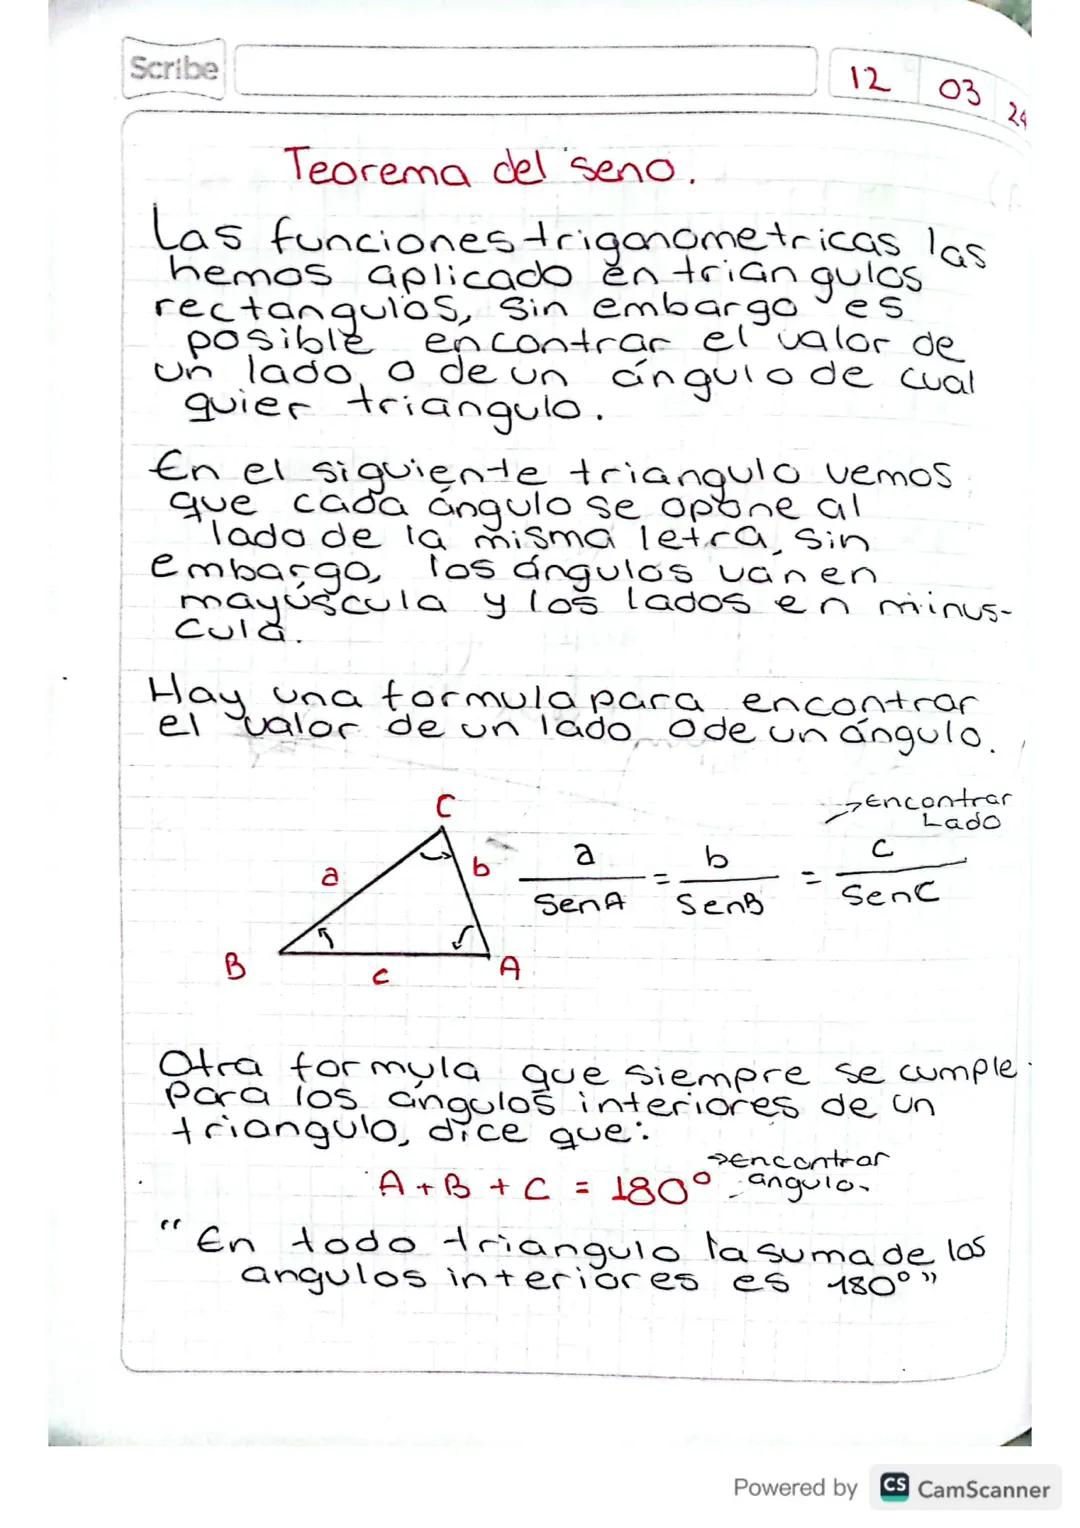 Scribe
12 03 24
Teorema del seno.
Las funciones trigonometricas las
hemos aplicado en trián gulos
rectangulos, sin embargo es
posible encontrar el valor de
un lado, o de un ángulo de cual
quier triangulo.
En el siguiente triangulo vemos
que cada ángulo se opone al
lado de la misma letra, sin
embargo, los ángulos van en
mayúscula y los lados en minus-
cula.
Hay una formula para encontrar
el valor de un lado o de un ángulo.
→Encontrar
Lado
C
a b
B c A
a/SenA = b/SenB = c/SenC
Otra formula que siempre se cumple
para los ángulos interiores de un
triangulo, dice que:
→encontrar
angulo.
A + B + C = 180°
"En todo triangulo la suma de los
angulos interiores es 180°"
Powered by CS CamScanner